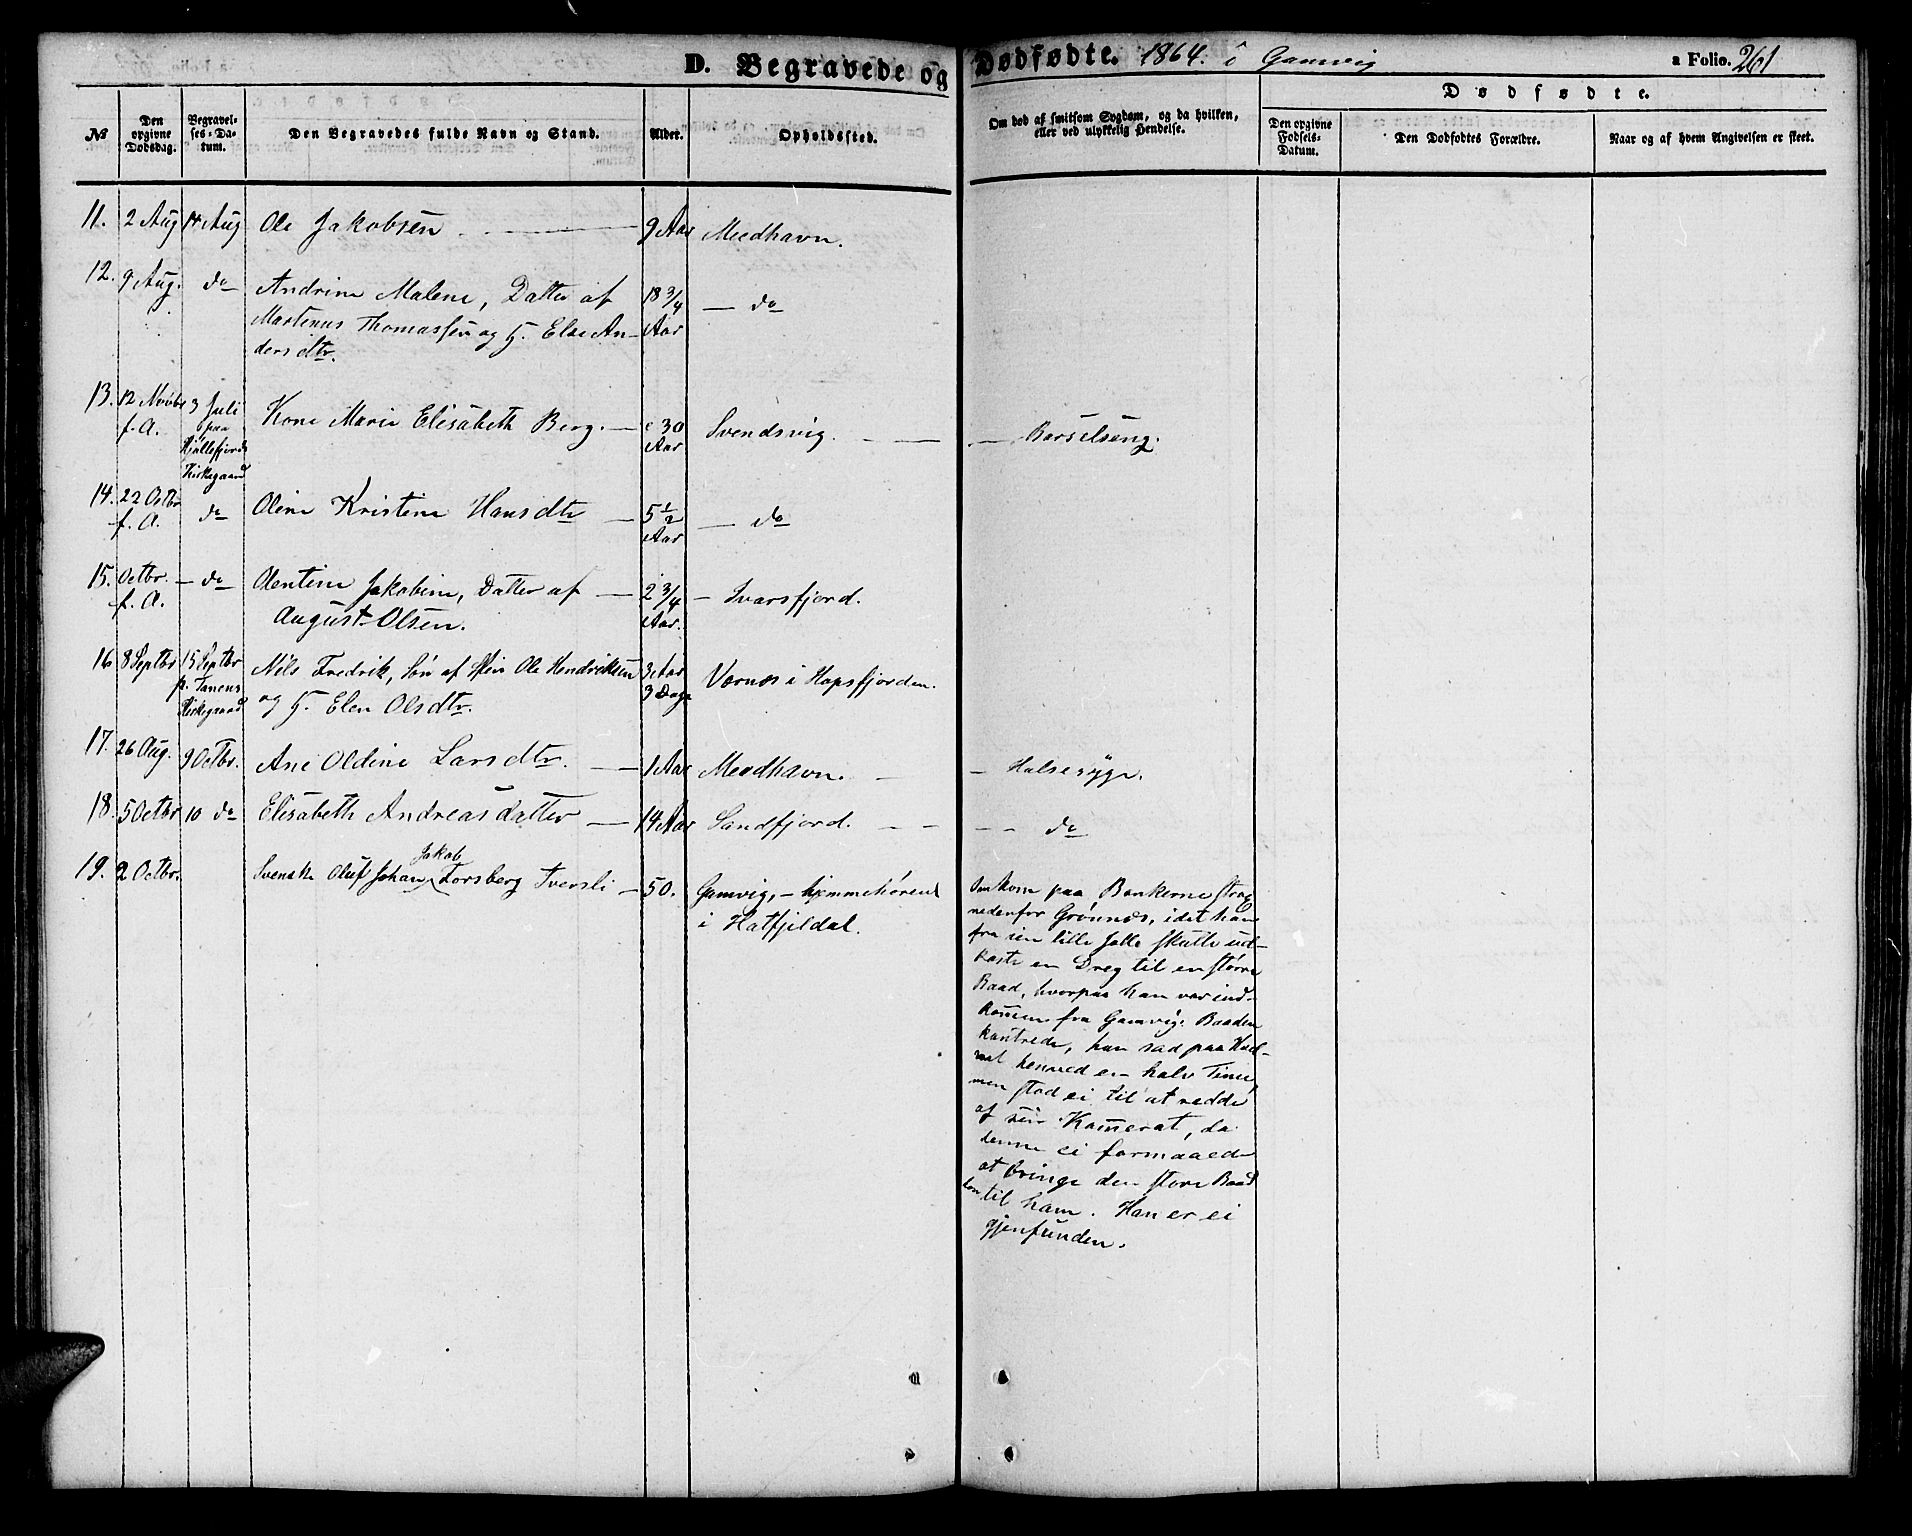 D. Begravede og Dødfødte. 1864. i Gamvig a Folio. 261
Dødfødte.
No
Den opgivne Dødsdag.
Begravelses-Datum.
Den Begravedes fulde Navn og Stand.
Alder.
Opholdssted.
Om død af smitsom Sygdom, og da hvilken, eller ved ulykkelig Hendelse.
Den opgivne Fødsels-Datum.
Den Dødfødtes Forældre.
Naar og af hvem Angivelsen er skeet.
11. 2 Aug 14 Aug Ole Jakobsen 9 Aar Meedhavn.
12. 9 Aug. do Andrine Malene, Datter af 18 3/4 Aar — do
Martenus Thomassen og H. Else An-
dersdtr.
13. 12 Novbr f. A. 3 Juli paa Kjøllefjords Kirkegaard Kone Marie Elisabeth Berg. — c 30 Aar Svendsvig. — — — Barselseng.
14. 22 Octbr f. A. do Oline Kristine Hansdtr — 5 1/2 Aar — do
15. Octbr. f. A. — do Olentine Jakobine, Datter af — 2 3/4 Aar. — Ivarsfjord.
August Olsen.
16 8 Septbr 15 Septbr p. Tanens Kirkegaard Nils Fredrik, Søn af Ole Hendriksen 3 Aar 3 Dage Vornæs i Hopsfjorden.
og H. Elen Olsdtr.
17. 26 Aug. 9 Octbr. Ane Oldine Larsdtr. — 1 Aar Meedhavn. — — Halsesyge.
18. 5 Octbr 10 do Elisabeth Andreasdatter — 14 Aar Sandfjord. — — — — do
19. 2 Octbr. Svenske Oluf Johan Jakob Forsberg Tversli — 50. Gamvig, — hjemmehørende
i Hatfjeldal.
Omkom paa Bankerne strax
nedenfor Grønnæs, idet han
fra sin lille Jolle skulle ud-
kaste en Dreg til en større
Baad, hvorpaa han var ind-
kommen fra Gamvig. Baaden
kantrede, han sad paa Hvæl-
vet henved en halv Time,
men stod ei til at redde
af sin Kamerat, da
denne ei formaaede
at bringe den store Baad
hen til ham. Han er ei
gjenfunden.